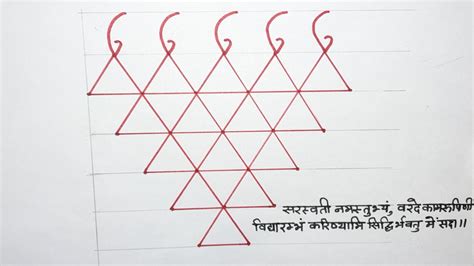 सरस्वती नमस्तुभ्यं, वरदे कामरुपिणी
विद्यारम्भं करिष्यामि सिद्धिर्भवतु में सदा॥